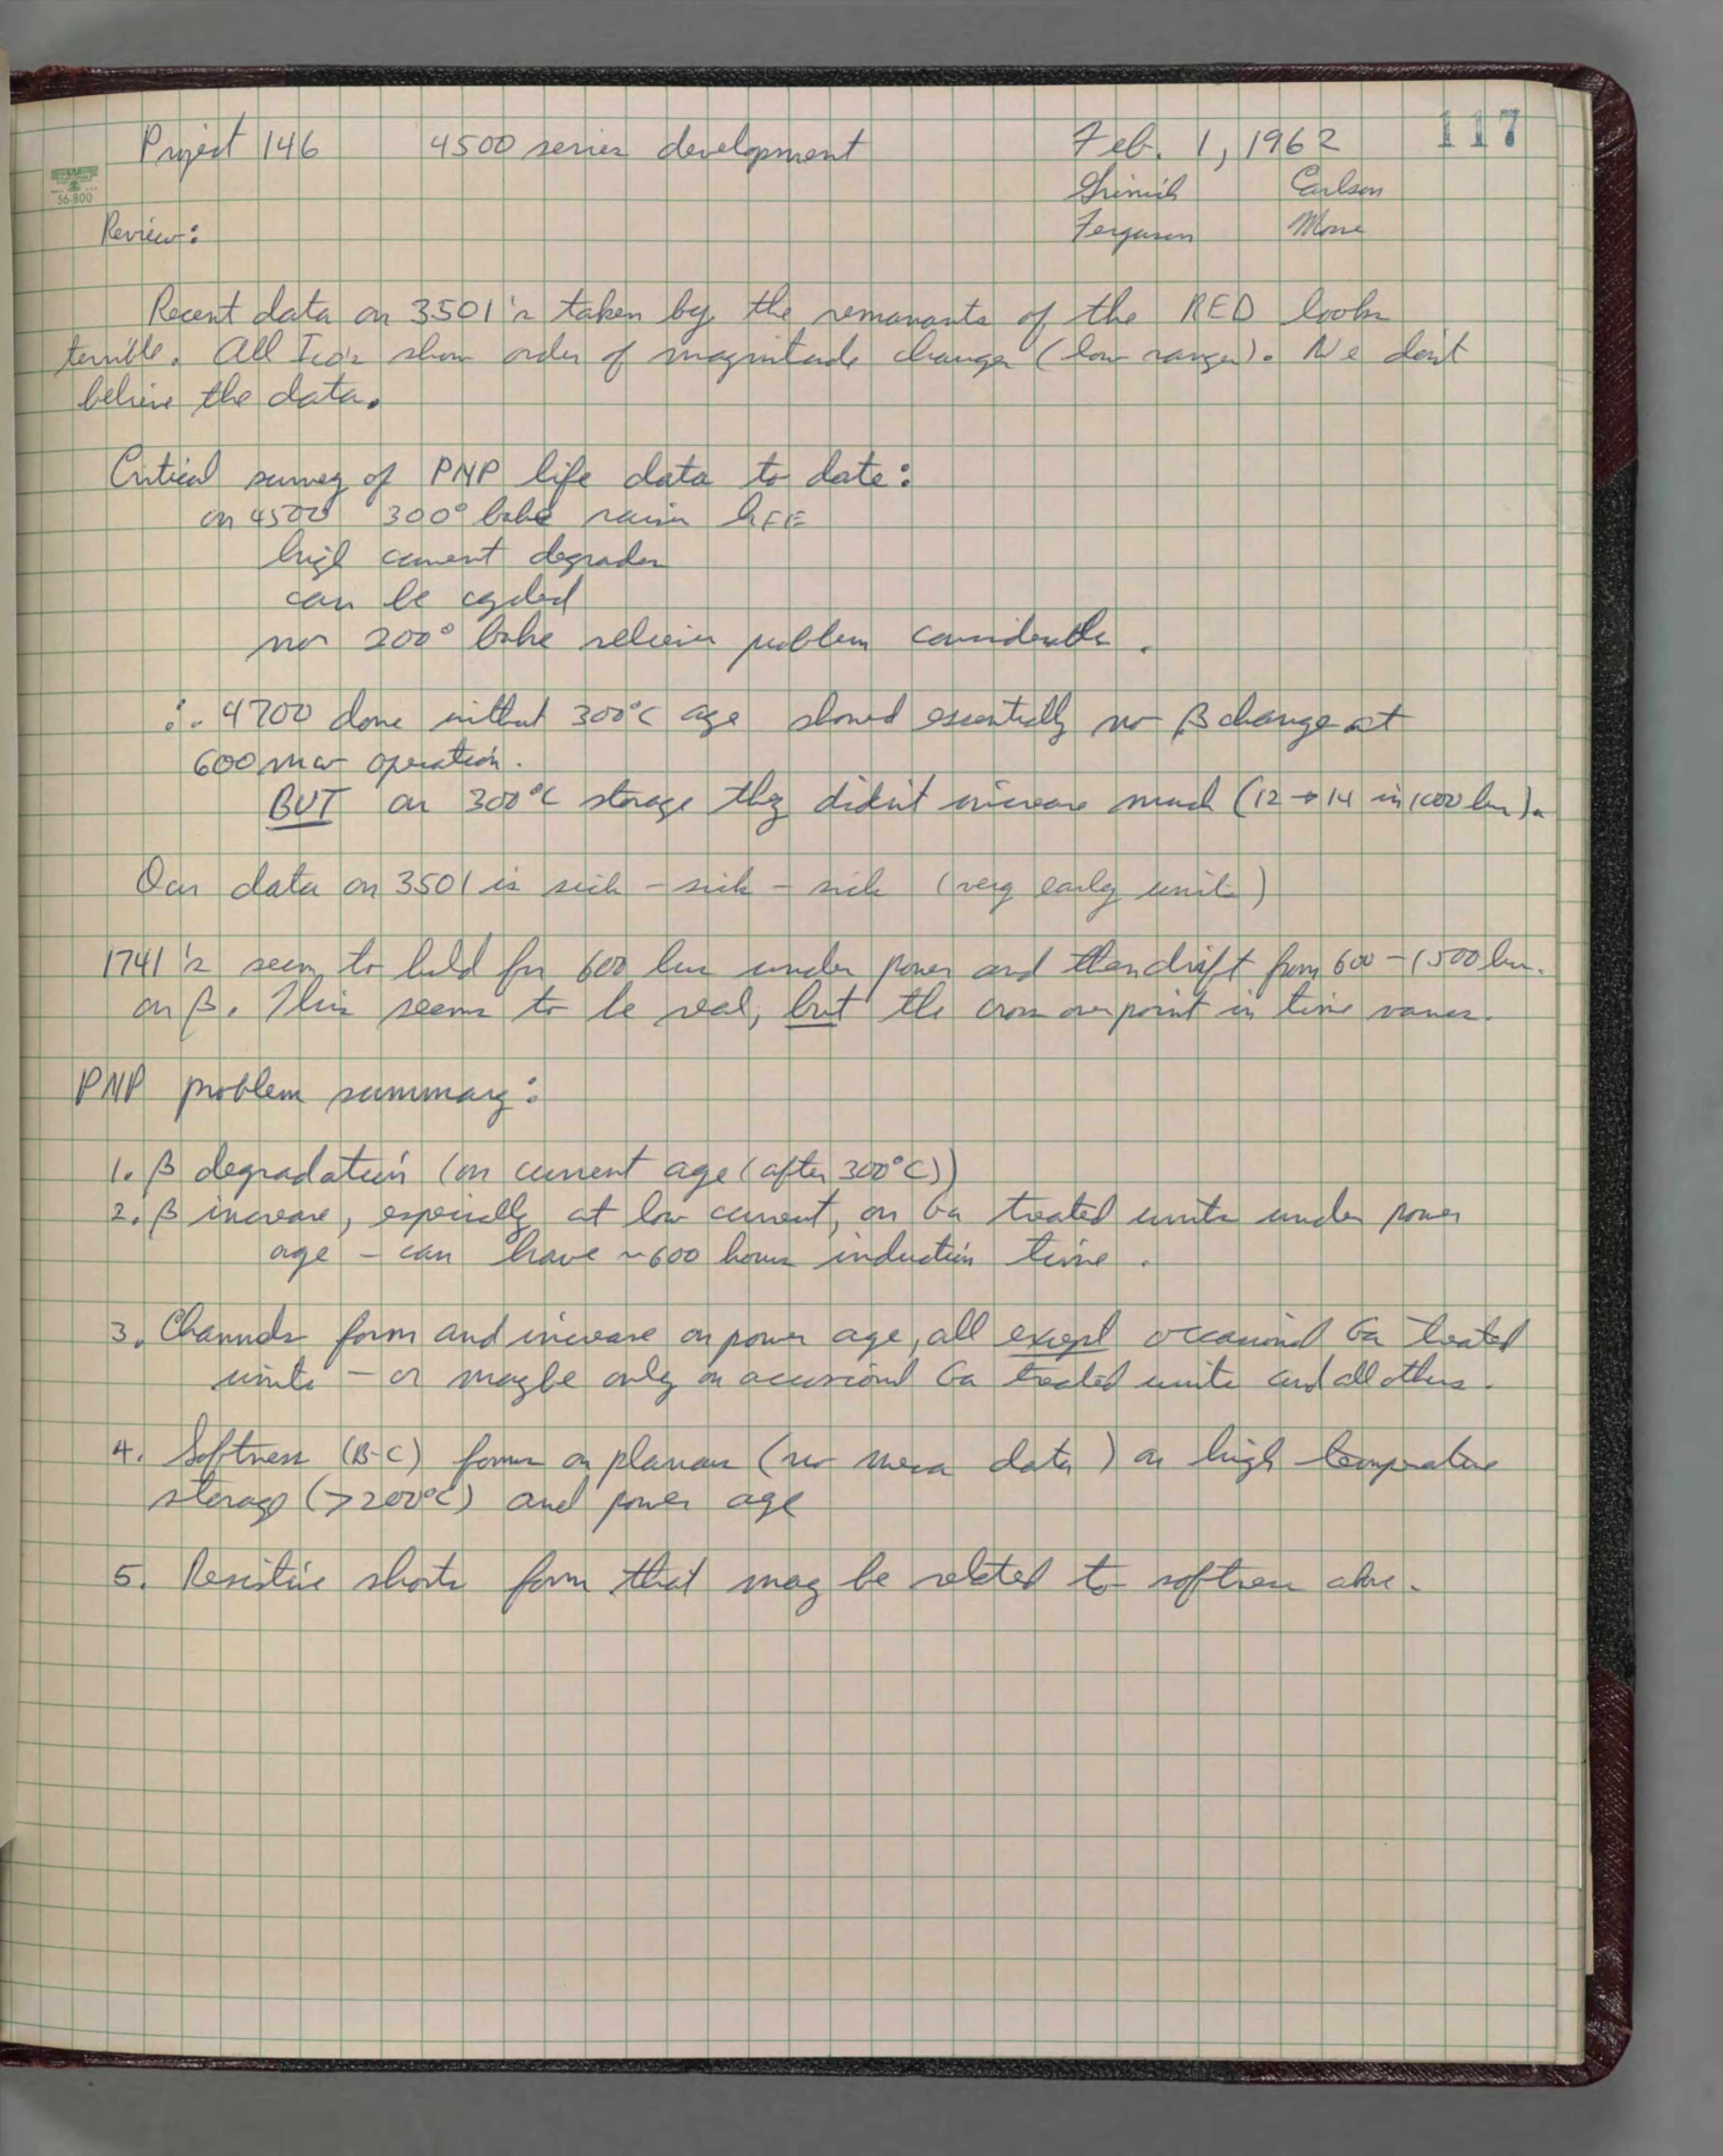 117
Project 146 4500 series development Feb. 1, 1962
56-800
Grinich Carlson
Ferguson Moore
Review:
Recent data on 3501's taken by the remanants of the RED looks
terrible. All Ico's show order of magnitude changes (low ranges). We don't
believe the data.
Critical survey of PNP life data to date:
on 4500 300° bake raises hFE
high current degrades
can be cycled
no 200° bake relieves problem considerable.
∴ 4700 done without 300°C age showed essentially no β change at
600 mw operation.
BUT on 300°C storage they didn't increase much (12 → 14 in 1000 hrs).
Our data on 3501 is sick - sick - sick (very early units)
1741's seem to hold for 600 hrs under power and then drift from 600 - 1500 hrs.
on β. This seems to be real, but the cross over point in time varies.
PNP problem summary:
1. β degradation (on current age (after 300°C))
2. β increase, especially at low current, on Ga treated units under power
age - can have ~600 hours induction time.
3. Channels form and increase on power age, all except occasional Ga treated
units - or maybe only on occasional Ga treated units and all others.
4. Softness (B-C) forms on planars (no mesa data) on high temperature
storage (>200°C) and power age
5. Resistive shorts form that may be related to softness above.